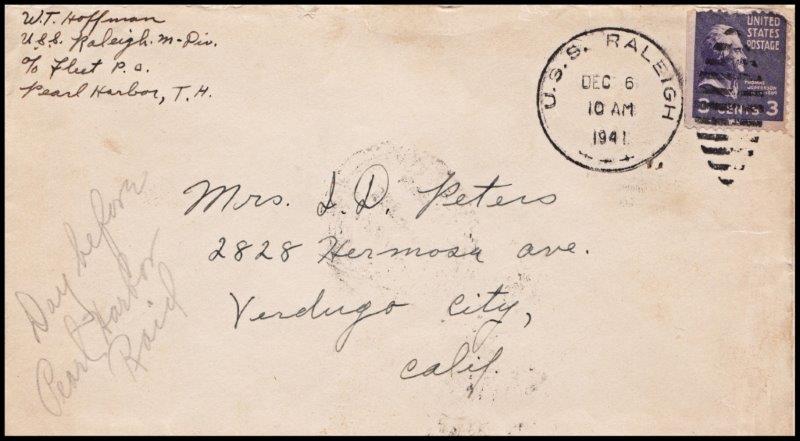 W.T. Hoffman
U.S.S. Raleigh. M-Div.
c/o Fleet P.O.
Pearl Harbor, T.H.
U.S.S. RALEIGH
DEC 6
10 AM
1941
UNITED
STATES
POSTAGE
THOMAS
JEFFERSON
3 CENTS 3
Mrs. L.D. Peters
2828 Hermosa ave.
Verdugo City,
Calif.
Day before
Pearl Harbor
Raid